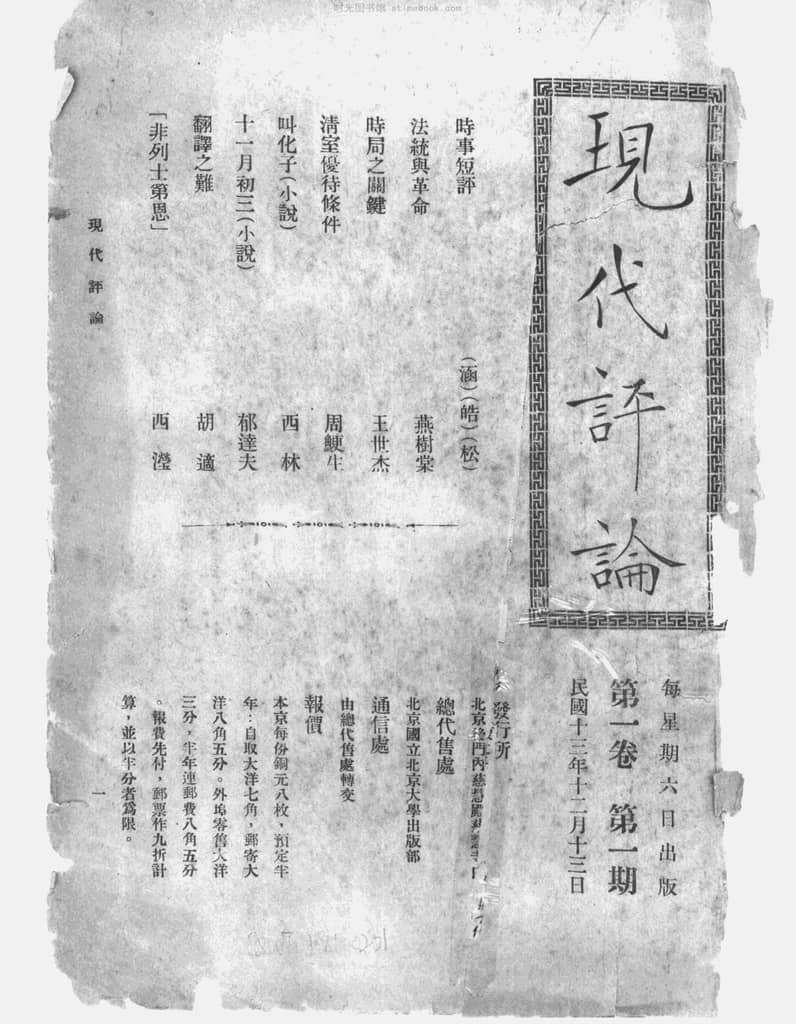 时光图书馆 atimebook.com
現代評論
每星期六日出版
第一卷 第一期
民國十三年十二月十三日
時事短評 (涵)(皓)(松)
法統與革命 燕樹棠
時局之關鍵 王世杰
清室優待條件 周鯁生
叫化子(小說) 西林
十一月初三(小說) 郁達夫
翻譯之難 胡適
「非列士第恩」 西瀅
發行所
北京後門內慈慧殿
總代售處
北京國立北京大學出版部
通信處
由總代售處轉交
報價
本京每份銅元八枚，預定半
年：自取大洋七角，郵寄大
洋八角五分。外埠零售大洋
三分，半年連郵費八角五分
。報費先付，郵票作九折計
算，並以半分者爲限。
現代評論
一